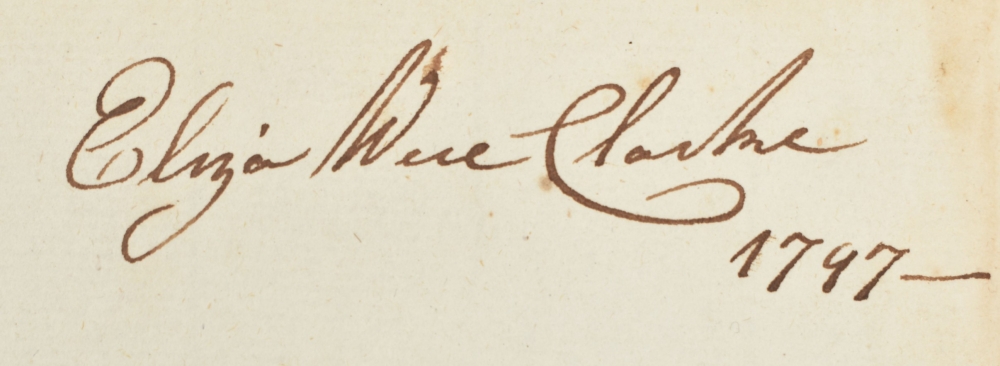 Eliza Were Clarke
1797—